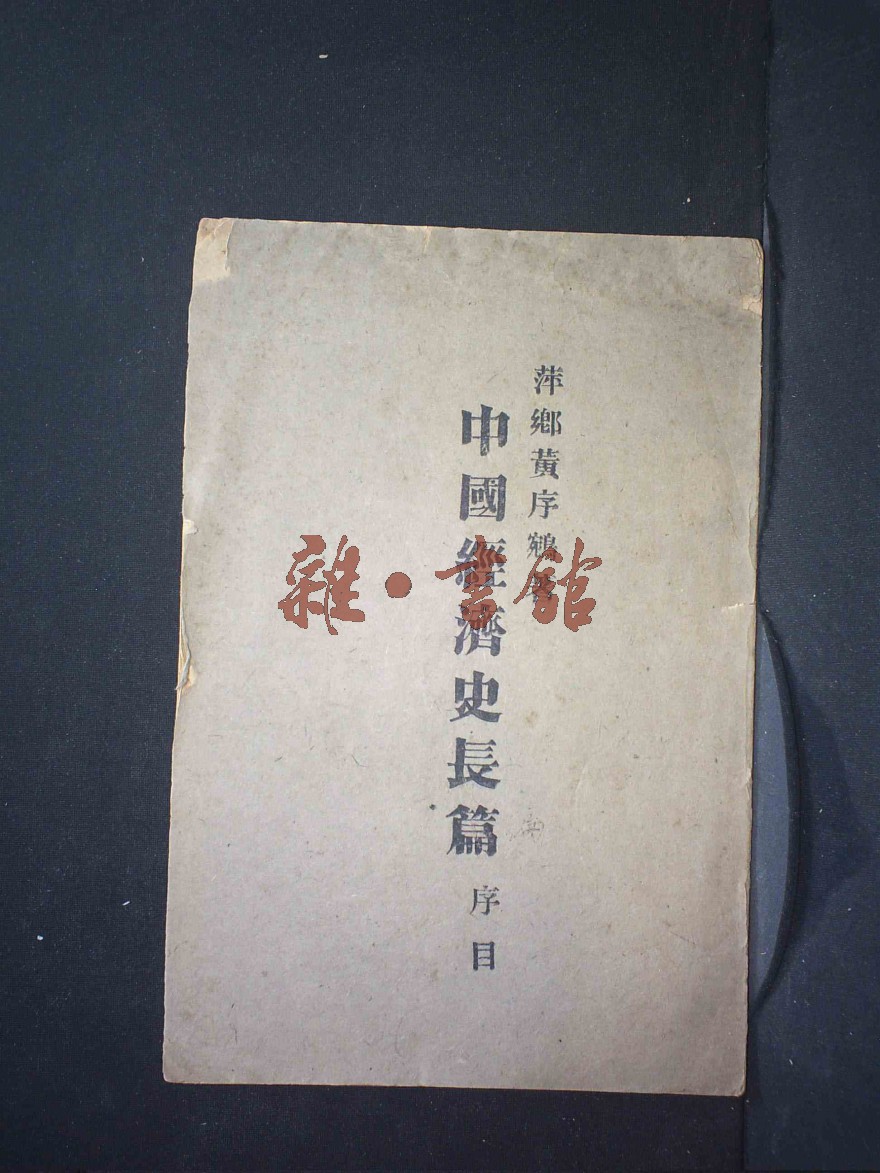 萍鄉黄序鵷著
中國經濟史長篇
序目
雜·書館